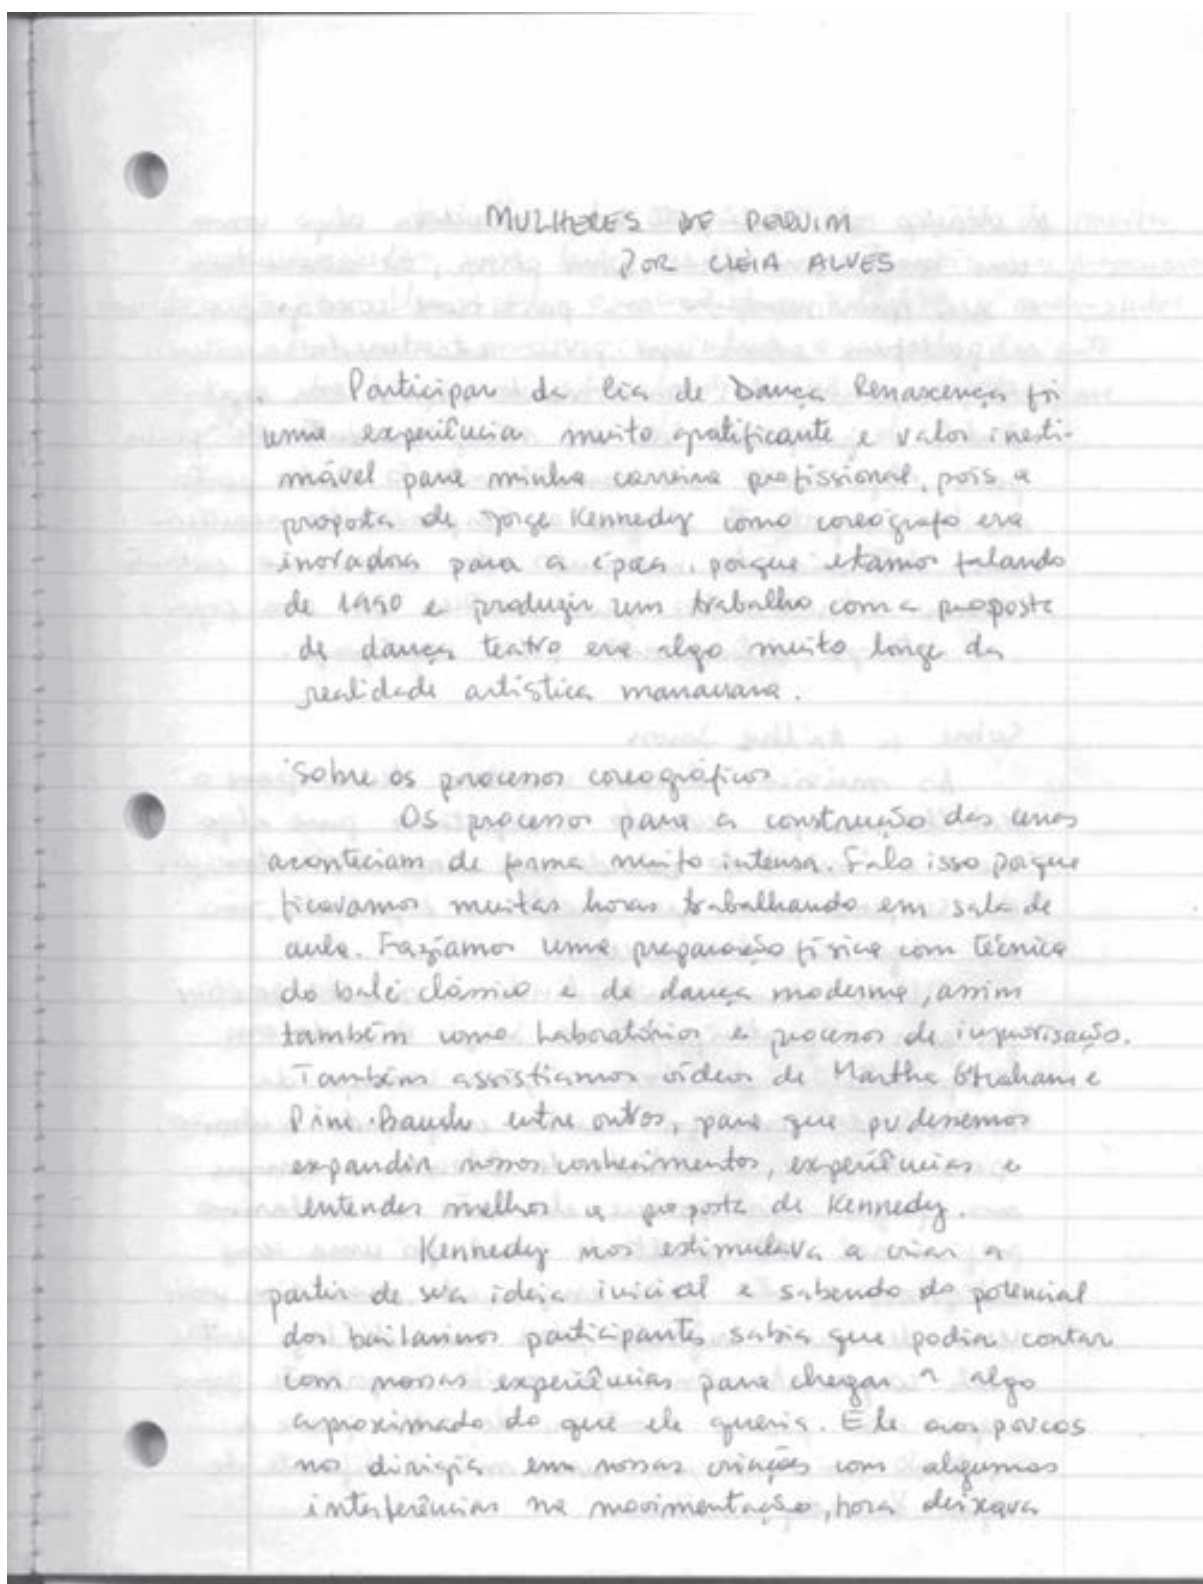 MULHERES DE PEQUIM
POR CLÉIA ALVES
Participar da Cia de Dança Renascença foi
uma experiência muito gratificante e valor inesti-
mável para minha carreira profissional, pois a
proposta de Jorge Kennedy como coreógrafo era
inovadora para a época, porque estamos falando
de 1990 e produzir um trabalho com a proposta
da dança teatro era algo muito longe da
realidade artística manauara.
Sobre os processos coreográficos
Os processos para a construção das cenas
aconteciam de forma muito intensa. Falo isso porque
ficavamos muitas horas trabalhando em sala de
aula. Fazíamos uma preparação física com técnica
do balé clássico e de dança moderna, assim
também como laboratórios e processos de improvisação.
Também assistíamos vídeos de Martha Graham e
Pina Bausch entre outros, para que pudessemos
expandir nossos conhecimentos, experiências e
entender melhor a proposta de Kennedy.
Kennedy nos estimulava a criar a
partir de sua ideia inicial e sabendo do potencial
dos bailarinos participantes sabia que podia contar
com nossas experiências para chegar a algo
aproximado do que ele queria. Ele aos poucos
nos dirigia em nossas criações com algumas
interferências na movimentação, hora deixava